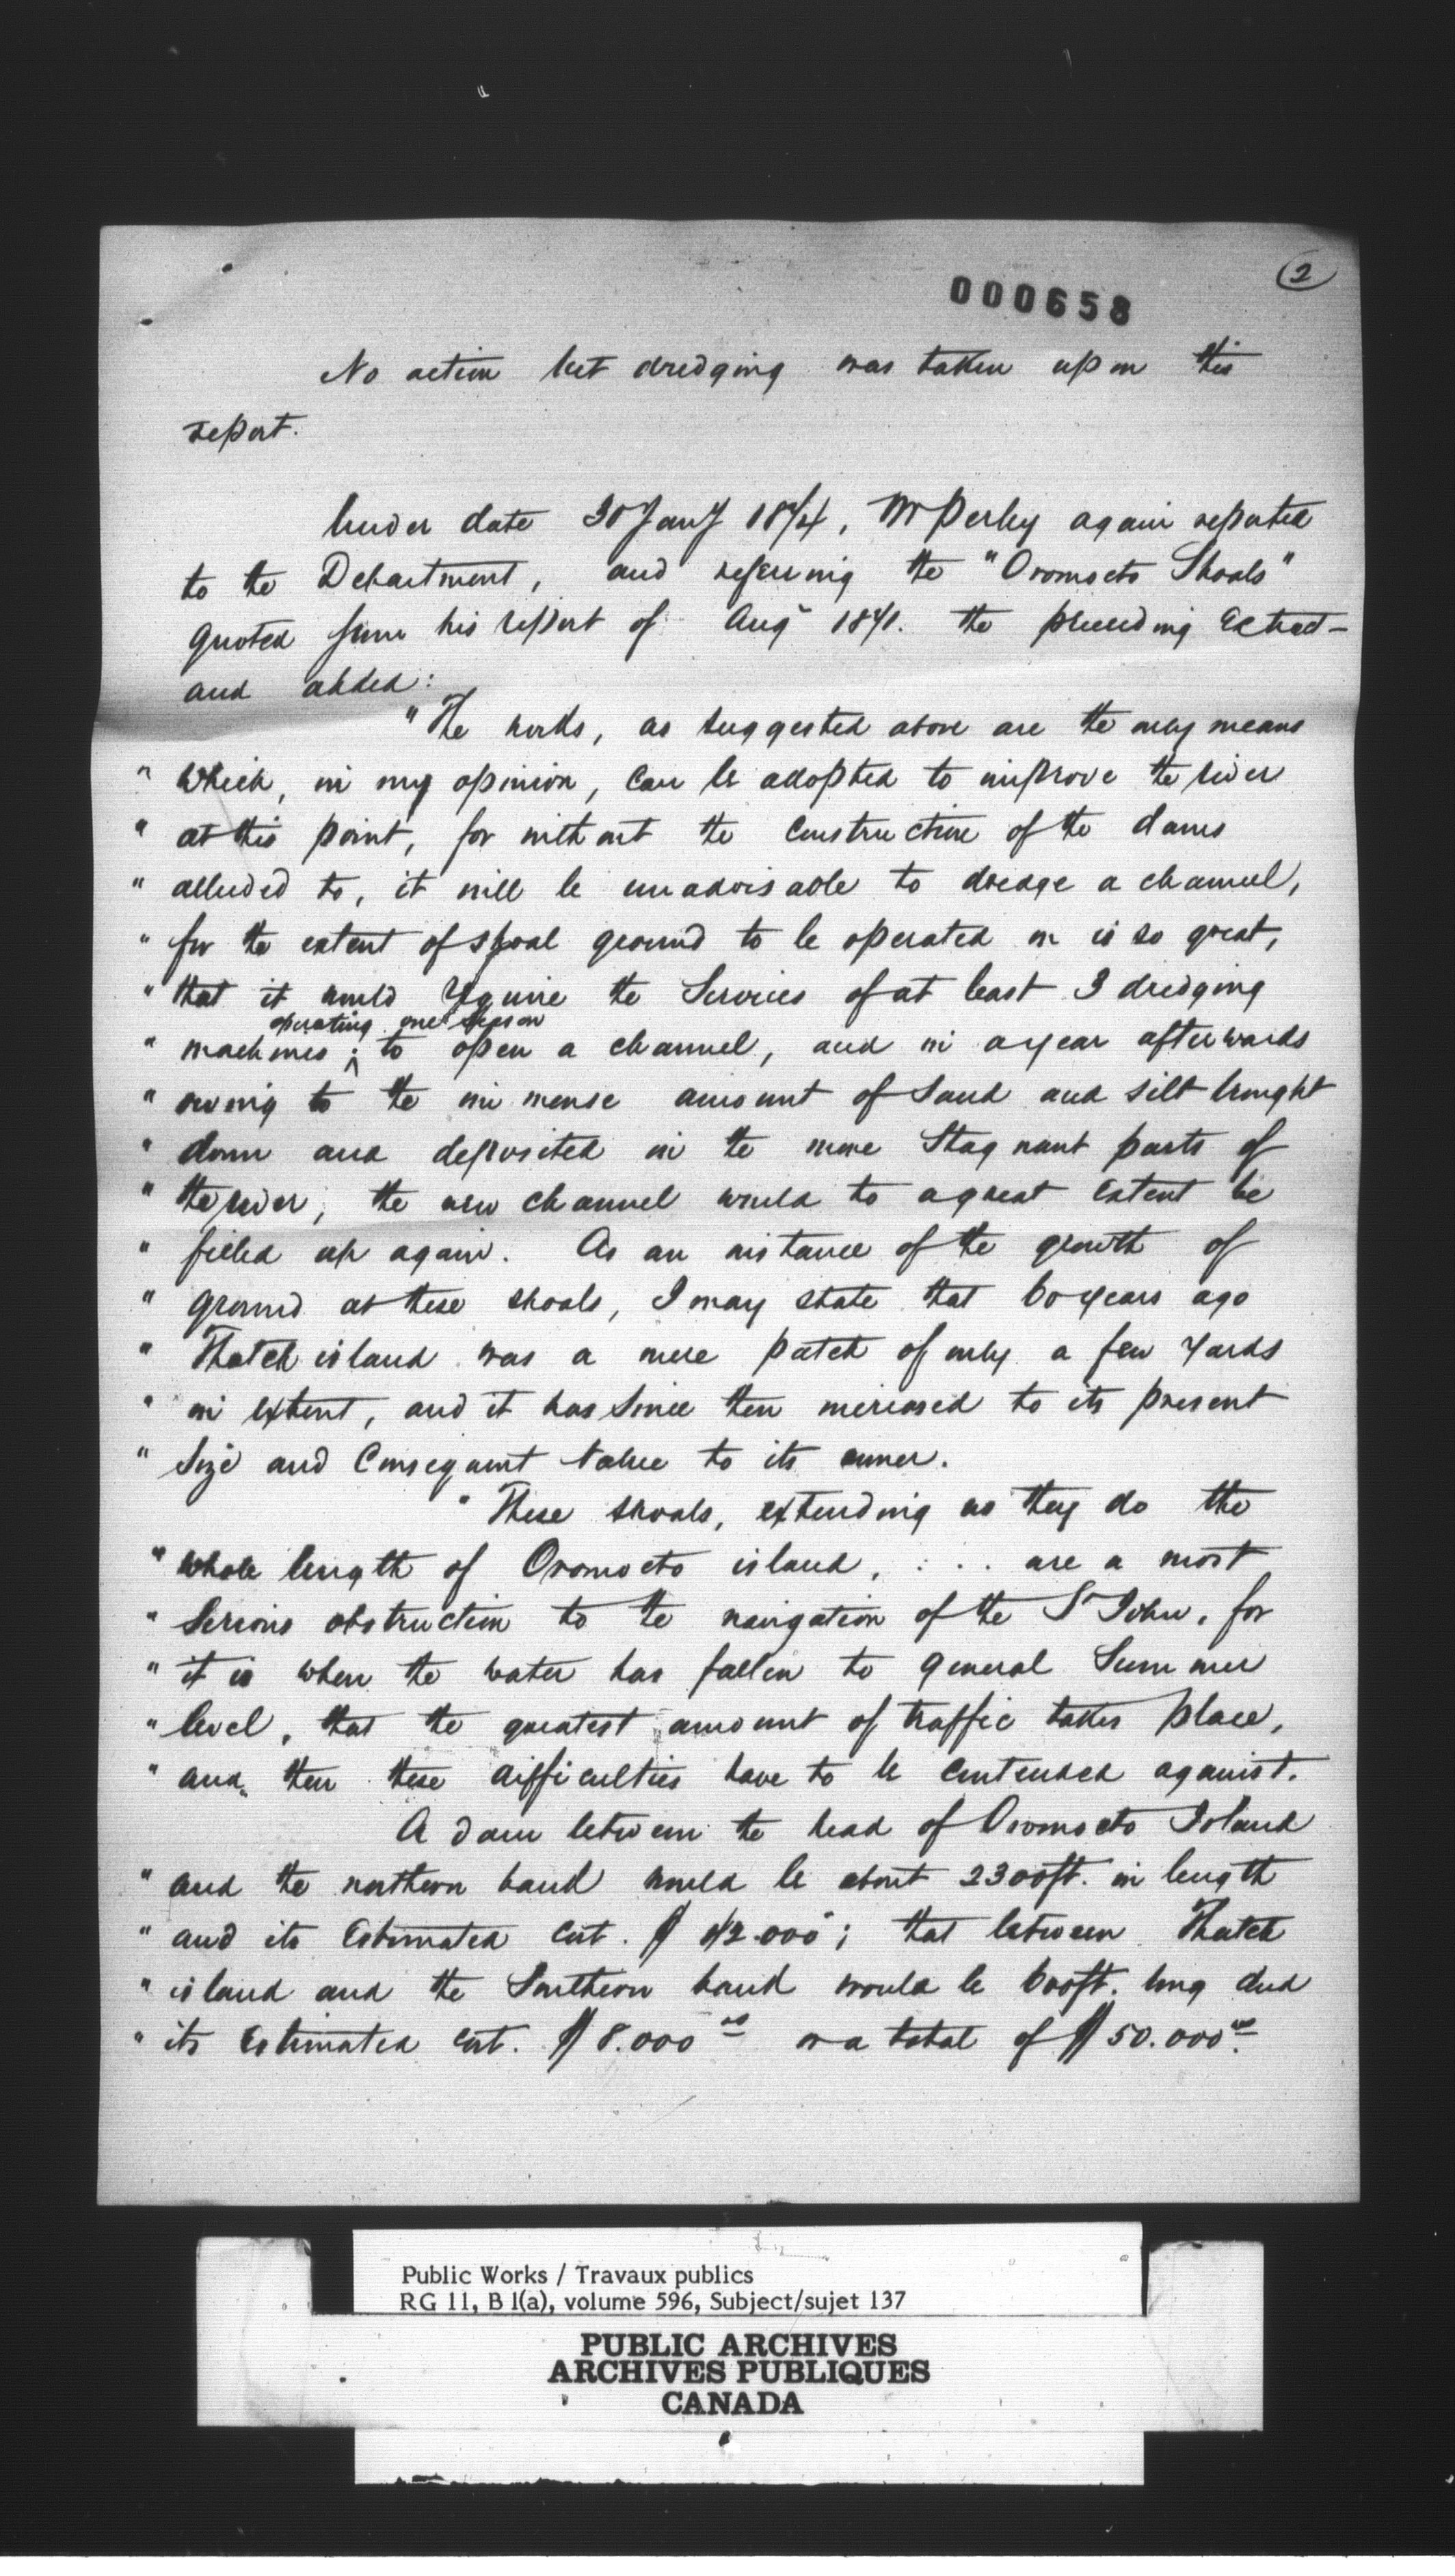 2
000658
No action but dredging was taken upon this
report.
Under date 30 Jany 1874, Mr Perley again reported
to the Department, and referring the "Oromocto Shoals"
quoted from his report of Augt 1871. the preceeding Extract-
and added:
"The works, as suggested above are the only means
" which, in my opinion, can be adopted to improve the river
" at this point, for without the construction of the dams
" alluded to, it will be unadvisable to dredge a channel,
" for the extent of shoal ground to be operated on is so great,
" that it would require the Services of at least 3 dredging
operating one season
" machines ; to open a channel, and in a year afterwards
" owing to the immense amount of Sand and silt brought
" down and deposited in the more Stagnant parts of
" the river, the new channel would to a great extent be
" filled up again. As an instance of the growth of
" ground at these shoals, I may state that 60 years ago
" Thatch island was a mere patch of only a few yards
" in extent, and it has since then increased to its present
" Size and Consequent Value to its owner.
" These shoals, extending as they do the
" whole length of Oromocto island, . . . are a most
" Serious obstruction to the navigation of the St John, for
" it is when the water has fallen to general Summer
" level, that the greatest amount of traffic takes place,
" and then these difficulties have to be contended against.
A dam between the head of Oromocto Island
" and the northern bank would be about 2300 ft. in length
" and its Estimated cost. $ 42.000; that between Thatch
" island and the Southern bank would be 600 ft. long and
" its Estimated cost. $ 8.000 00 or a total of $ 50.000 00.
Public Works / Travaux publics
RG 11, B 1(a), volume 596, Subject/sujet 137
PUBLIC ARCHIVES
ARCHIVES PUBLIQUES
CANADA